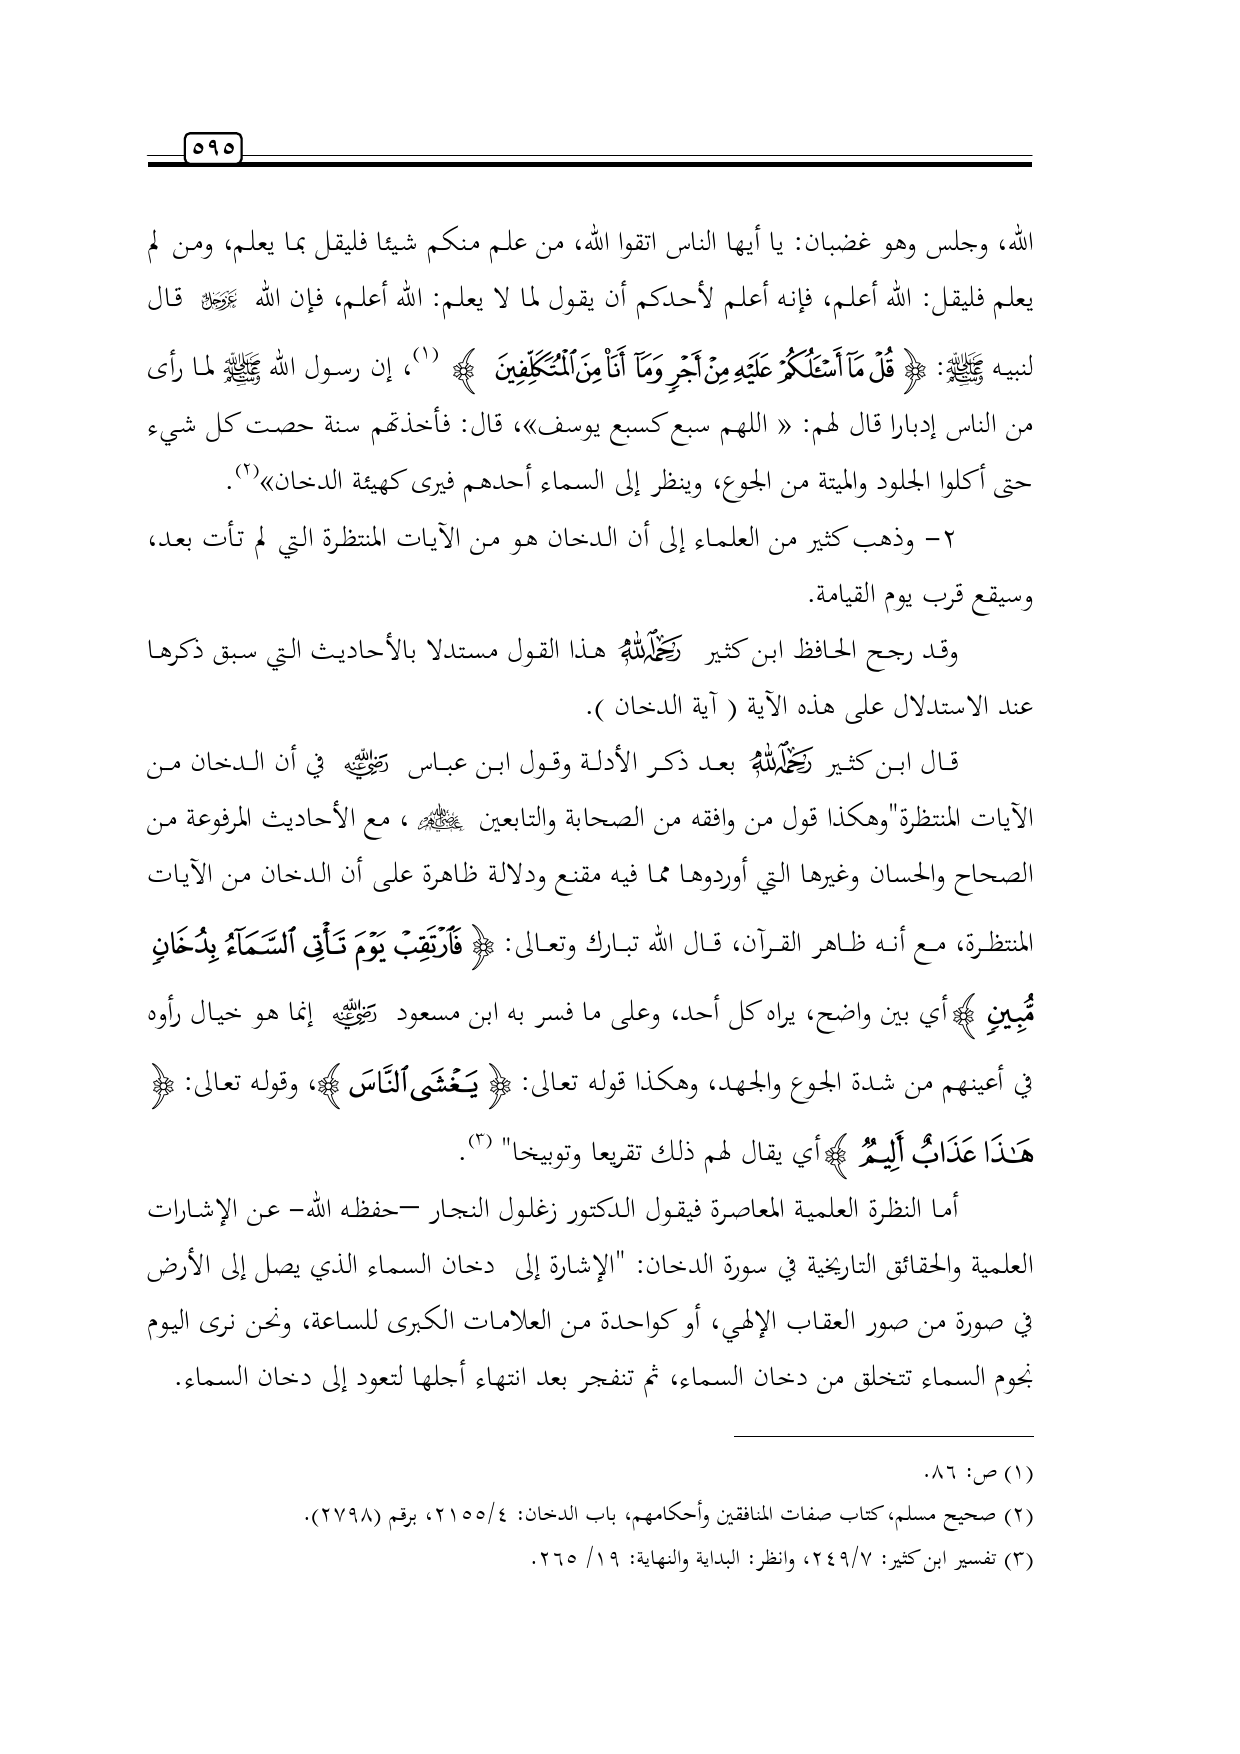 ٥٩٥
الله، وجلس وهو غضبان: يا أيها الناس اتقوا الله، من علم منكم شيئا فليقل بما يعلم، ومن لم
يعلم فليقل: الله أعلم، فإنه أعلم لأحدكم أن يقول لما لا يعلم: الله أعلم، فإن الله عز وجل قال
لنبيه ﷺ: ﴿ قُلْ مَآ أَسْـَٔلُكُمْ عَلَيْهِ مِنْ أَجْرٍ وَمَآ أَنَا۠ مِنَ ٱلْمُتَكَلِّفِينَ ﴾ (١)، إن رسول الله ﷺ لما رأى
من الناس إدبارا قال لهم: « اللهم سبع كسبع يوسف»، قال: فأخذتهم سنة حصت كل شيء
حتى أكلوا الجلود والميتة من الجوع، وينظر إلى السماء أحدهم فيرى كهيئة الدخان»(٢).
٢- وذهب كثير من العلماء إلى أن الدخان هو من الآيات المنتظرة التي لم تأت بعد،
وسيقع قرب يوم القيامة.
وقد رجح الحافظ ابن كثير رحمه الله هذا القول مستدلا بالأحاديث التي سبق ذكرها
عند الاستدلال على هذه الآية ( آية الدخان ).
قال ابن كثير رحمه الله بعد ذكر الأدلة وقول ابن عباس رضي الله عنه في أن الدخان من
الآيات المنتظرة"وهكذا قول من وافقه من الصحابة والتابعين رضي الله عنهم ، مع الأحاديث المرفوعة من
الصحاح والحسان وغيرها التي أوردوها مما فيه مقنع ودلالة ظاهرة على أن الدخان من الآيات
المنتظرة، مع أنه ظاهر القرآن، قال الله تبارك وتعالى: ﴿ فَٱرْتَقِبْ يَوْمَ تَأْتِى ٱلسَّمَآءُ بِدُخَانٍ
مُّبِينٍ ﴾ أي بين واضح، يراه كل أحد، وعلى ما فسر به ابن مسعود رضي الله عنه إنما هو خيال رأوه
في أعينهم من شدة الجوع والجهد، وهكذا قوله تعالى: ﴿ يَغْشَى ٱلنَّاسَ ﴾، وقوله تعالى: ﴿
هَـٰذَا عَذَابٌ أَلِيمٌ ﴾ أي يقال لهم ذلك تقريعا وتوبيخا" (٣).
أما النظرة العلمية المعاصرة فيقول الدكتور زغلول النجار –حفظه الله- عن الإشارات
العلمية والحقائق التاريخية في سورة الدخان: "الإشارة إلى دخان السماء الذي يصل إلى الأرض
في صورة من صور العقاب الإلهي، أو كواحدة من العلامات الكبرى للساعة، ونحن نرى اليوم
نجوم السماء تتخلق من دخان السماء، ثم تنفجر بعد انتهاء أجلها لتعود إلى دخان السماء.
(١) ص: ٨٦.
(٢) صحيح مسلم، كتاب صفات المنافقين وأحكامهم، باب الدخان: ٢١٥٥/٤، برقم (٢٧٩٨).
(٣) تفسير ابن كثير: ٢٤٩/٧، وانظر: البداية والنهاية: ١٩/ ٢٦٥.